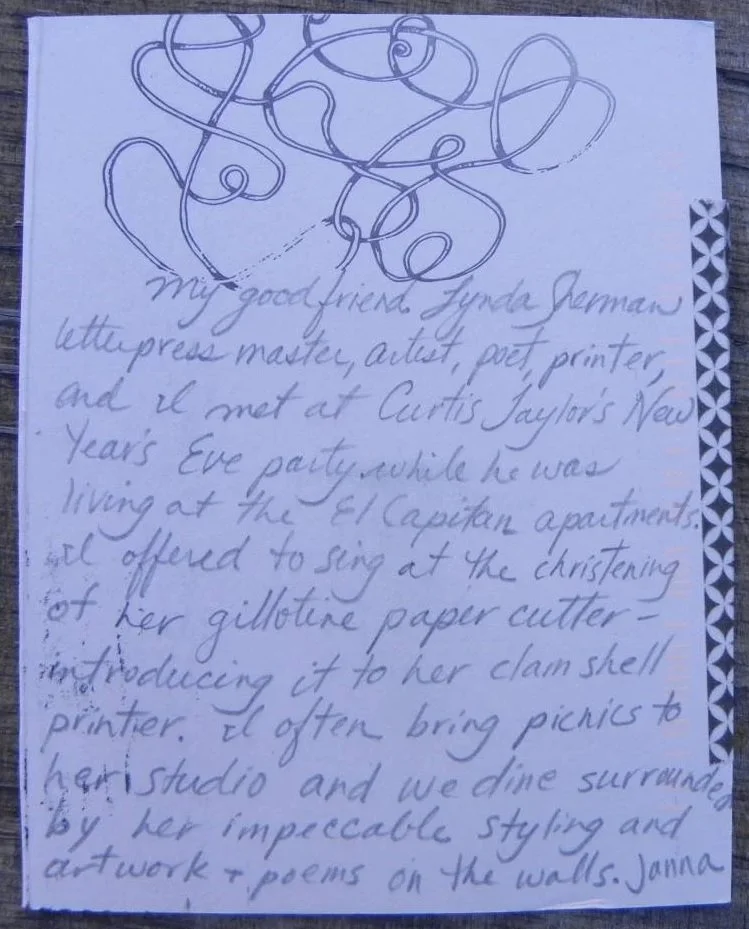 My good friend Lynda Sherman
letterpress master, artist, poet, printer,
and I met at Curtis Taylor's New
Year's Eve party while he was
living at the El Capitan apartments.
I offered to sing at the christening
of her gillotine paper cutter-
introducing it to her clam shell
printer. I often bring picnics to
her studio and we dine surrounded
by her impeccable styling and
artwork + poems on the walls. Janna